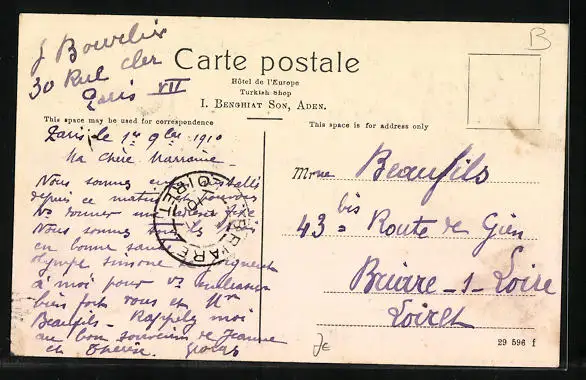 J Bouvelin
30 Rue Cler
Paris VII
B
Carte postale
Hôtel de l'Europe
Turkish Shop
I. Benghiat Son, Aden.
This space may be used for correspondence
This space is for address only
Paris le 1er 9bre 1910
Ma chère Marraine
Nous sommes installés
depuis ce matin
Vs donner
Nous sommes tous
en bonne santé
Olympe Simone joignent
à moi pour vs embrasser
bien fort vous et Mr
Beaufils - Rappelez moi
au bon souvenir de Jeanne
et Thérèse.
BRIARE
LOIRET
Mme Beaufils
43 bis Route de Gien
Briare-s-Loire
Loiret
29 596 f